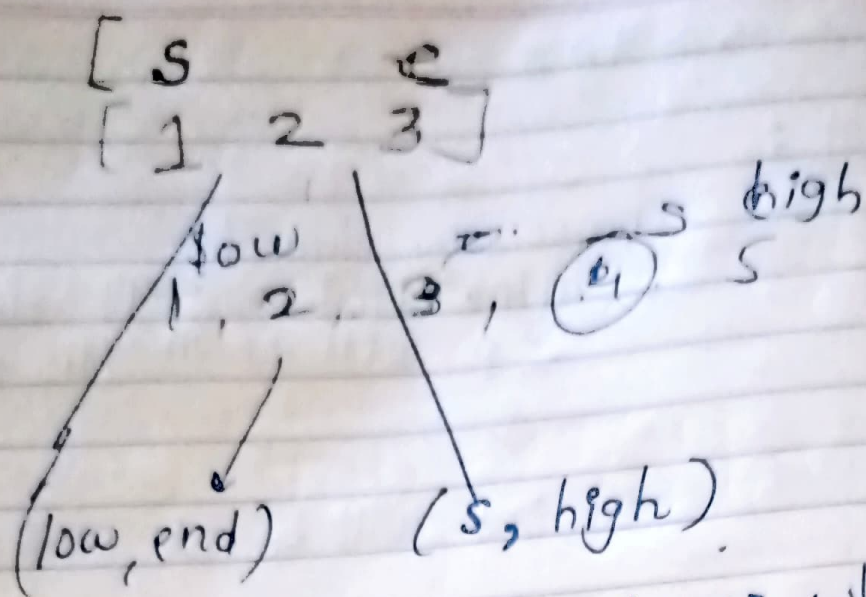 [ S e
[ 1 2 3 ]
low S high
1, 2, 3, 4 5
(low, end) (s, high)